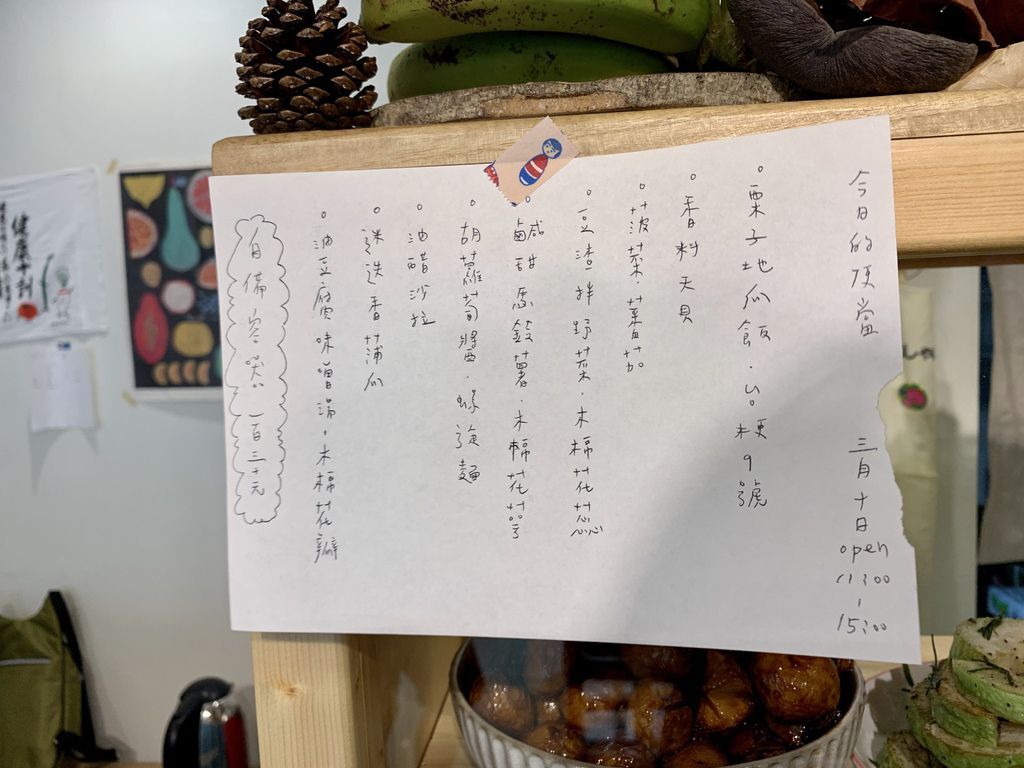 今日的便當　三月十日 open 11:00 - 15:00
栗子地瓜飯・台粳9號
香料天貝
菠菜・蕃茄
豆渣拌野菜・木棉花蕊
鹹甜馬鈴薯・木棉花萼
胡蘿蔔醬・螺旋麵
油醋沙拉
迷迭香蒲瓜
油豆腐味噌湯・木棉花瓣
自備容器 一百三十元
健康平安